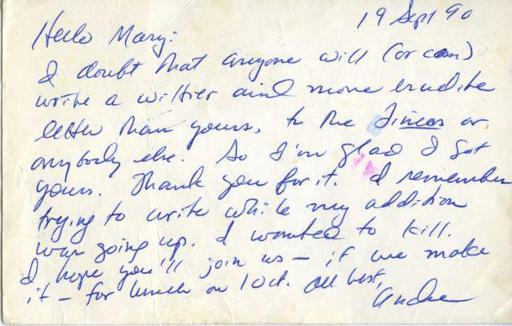 19 Sept 90
Hello Mary:
I doubt that anyone will (or can)
write a wittier and more erudite
letter than yours, to the Times or
anybody else. So I'm glad I got
yours. Thank you for it. I remember
trying to write while my addition
was going up. I wanted to kill.
I hope you'll join us – if we make
it – for lunch on 1 Oct. All best,
Andre